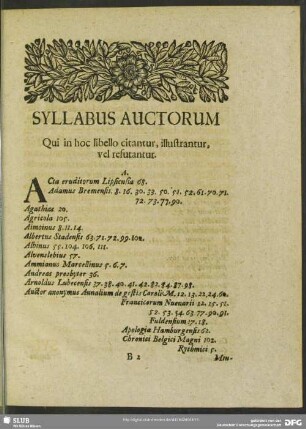 SYLLABUS AUCTORUM
Qui in hoc libello citantur, illustrantur,
vel refutantur.
A.
ACta eruditorum Lipsiensia 68.
Adamus Bremensis. 8. 16. 30. 39. 50. 51. 52. 61. 70. 71.
72. 73. 77. 90.
Agathias 20.
Agricola 105.
Aimoinus 8. 11. 14.
Albertus Stadensis 63. 71. 72. 99. 102.
Albinus 55. 104. 106. 111.
Alvenslebius 57.
Ammianus Marcellinus 5. 6. 7.
Andreas presbyter 36.
Arnoldus Lubecensis 37. 38. 40. 41. 42. 83. 84. 87. 98.
Auctor anonymus Annalium de gestis Caroli M. 12. 13. 21. 24. 60.
Francicarum Nuenarii 12. 15. 51.
52. 53. 54. 63. 77. 90. 91.
Fuldensium 17. 18.
Apologia Hamburgensis 62.
Chronici Belgici Magni 102.
Rythmici 5.
B 2
Min-
SLUB